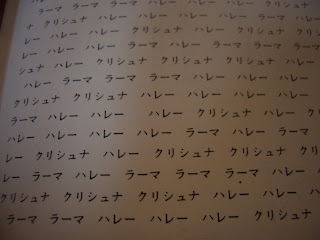 ハレー
ラーマ ラーマ ハレー ハレー ハレー
ナ クリシュナ ハレー ハレー ハレー ラーマ
レー ハレー クリシュナ クリシュナ ハレー
ハレー ラーマ ハレー ラーマ ラーマ ラーマ
シュナ ハレー クリシュナ クリシュナ ハレー
ハレー ラーマ ラーマ ハレー ハレー ハレー
クリシュナ ハレー ハレー ハレー ハレー
ラーマ ハレー ハレー ハレー クリシュナ ハレー
ハレー ハレー クリシュナ クリシュナ ハレー ハレー
ハレー ラーマ ハレー ラーマ ラーマ ラーマ
レー クリシュナ ハレー クリシュナ クリシュナ
ハレー ハレー ラーマ ラーマ ラーマ ハレー
クリシュナ クリシュナ ハレー ハレー ハレー
ラーマ ラーマ ハレー ハレー ハレー クリシュナ